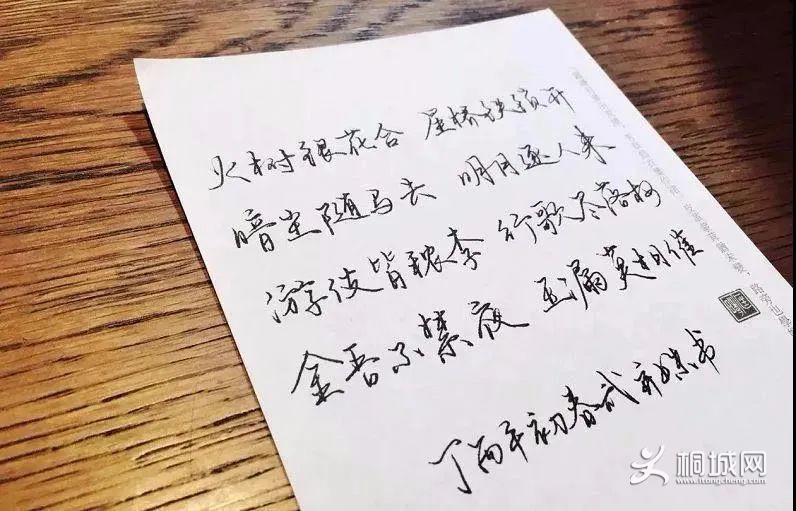 火树银花合 星桥铁锁开
暗尘随马去 明月逐人来
游伎皆秾李 行歌尽落梅
金吾不禁夜 玉漏莫相催
丁酉年初春武书
桐城网
www.itongcheng.com